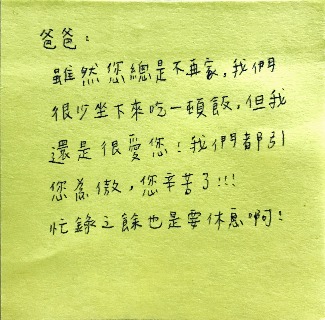 爸爸：
雖然您總是不再家，我們
很少坐下來吃一頓飯，但我
還是很愛您！我們都引
您為傲，您辛苦了!!!
忙錄之餘也是要休息啊！